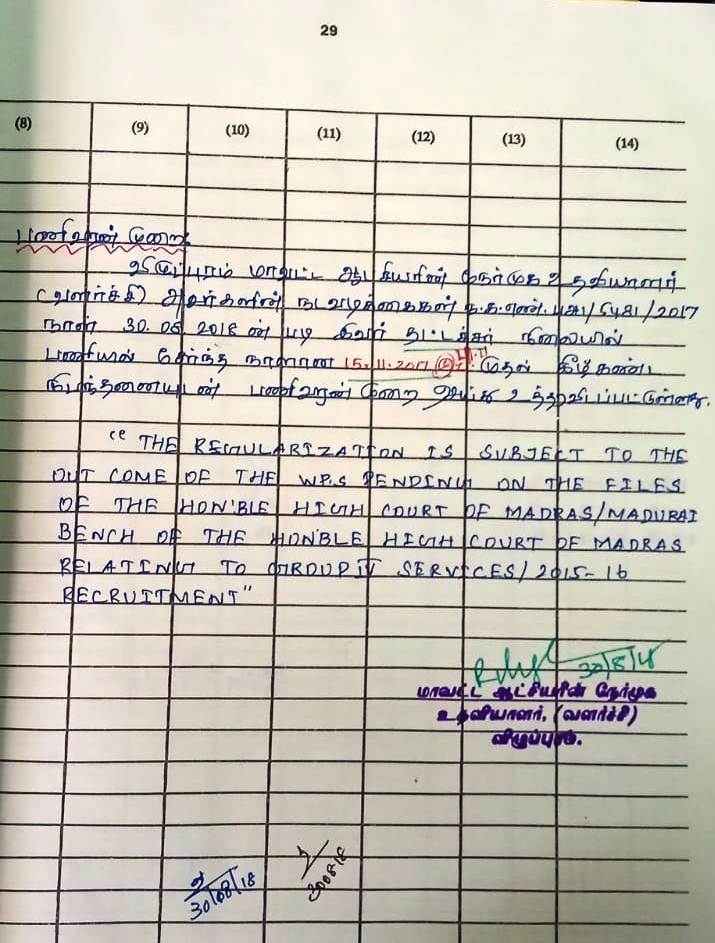 29
(8) (9) (10) (11) (12) (13) (14)
பணிவரன் முறை:
விழுப்புரம் மாவட்ட ஆட்சியரின் நேர்முக உதவியாளர்
(வளர்ச்சி) அவர்களின் நடவடிக்கைகள் ந.க.எண். /5481/2017
நாள் 30.06 2018 ன் படி இவர் தட்டச்சர் நிலையில்
பணியில் சேர்ந்த நாளான 15.11.2017 முதல் கீழ்கண்ட
நிபந்தனையுடன் பணிவரன் முறை செய்து உத்தரவிடப்பட்டுள்ளது.
"THE REGULARIZATION IS SUBJECT TO THE
OUT COME OF THE WP.S PENDING ON THE FILES
OF THE HON'BLE HIGH COURT OF MADRAS/MADURAI
BENCH OF THE HON'BLE HIGH COURT OF MADRAS
RELATING TO GROUP IV SERVICES/2015-16
RECRUITMENT"
30/8/18
மாவட்ட ஆட்சியரின் நேர்முக
உதவியாளர், (வளர்ச்சி)
விழுப்புரம்.
30/08/18
300818